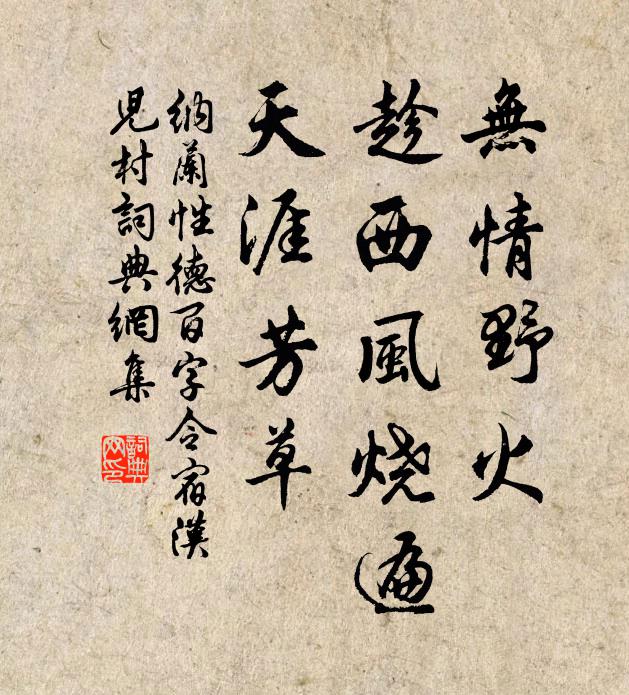 無情野火
趁西風燒遍
天涯芳草
納蘭性德百字令宿漢
児村詞典網集
詞典网印